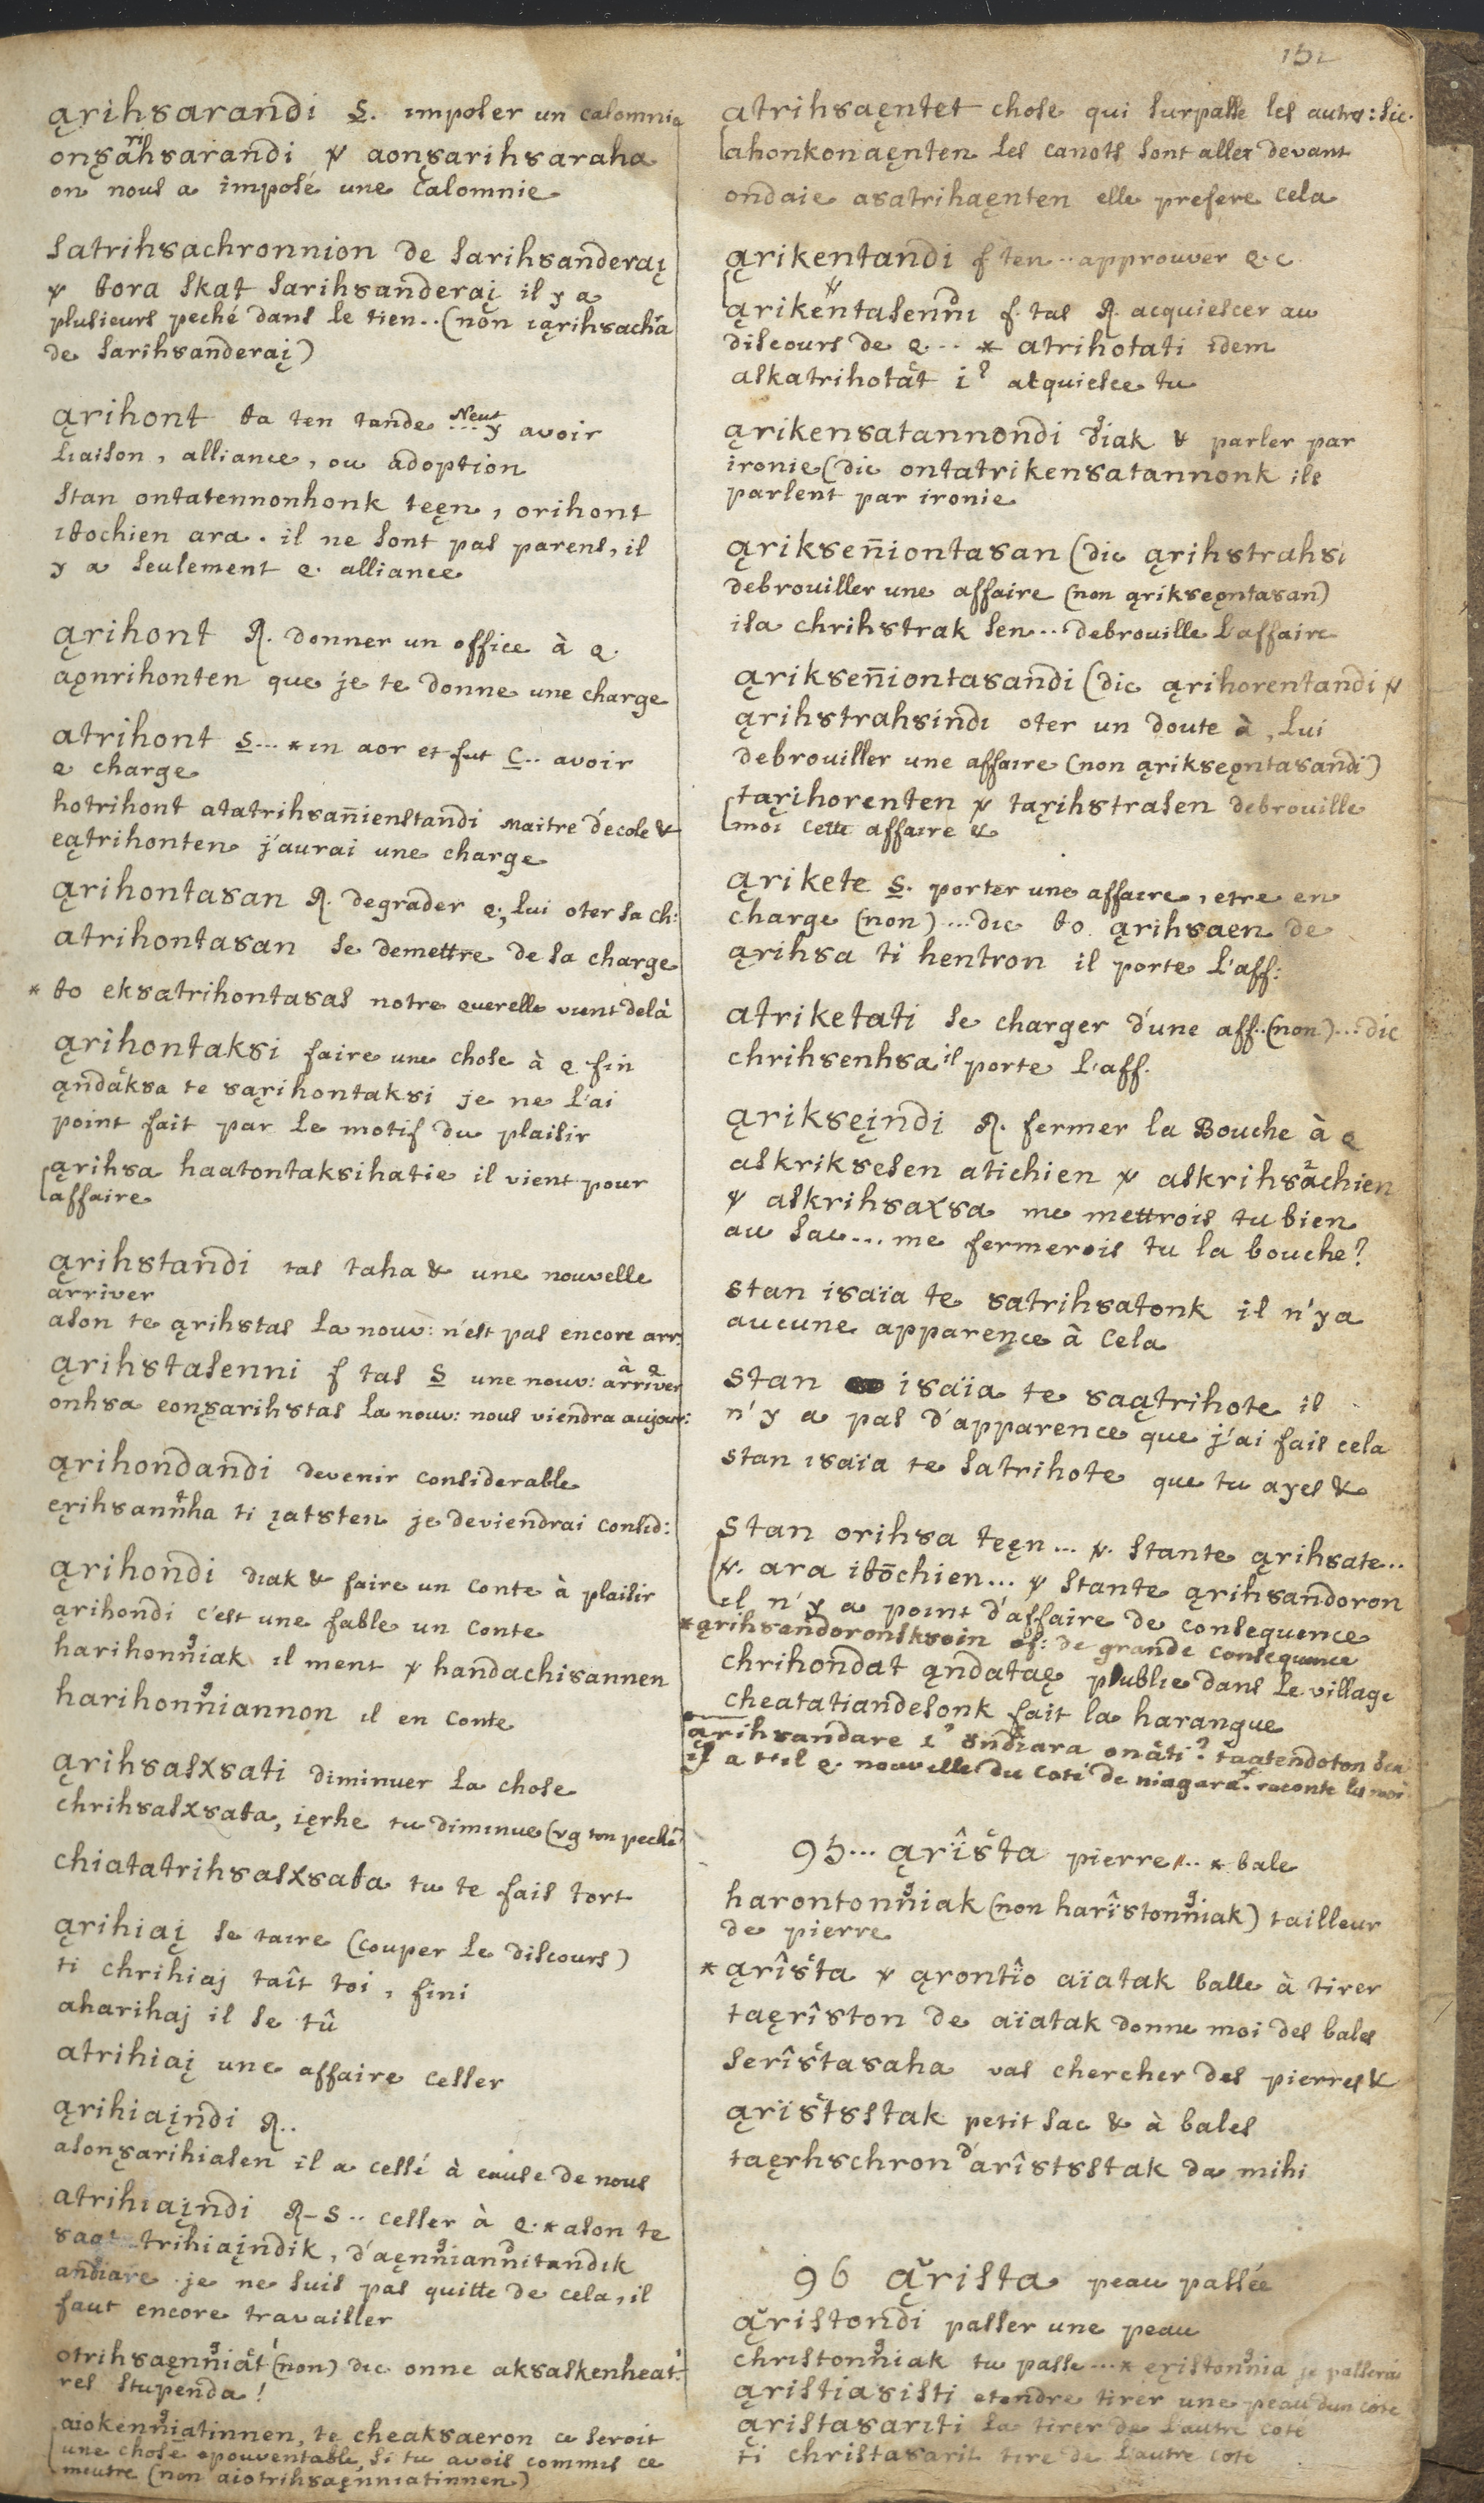 152
ąrihsarandi S. imposer un calomnie
onȣąrihsarandi ꝟ aonȣarihsaraha
on nous a imposé une calomnie
satrihsachronnion de sarihsanderaį
ꝟ ꝋora skat sarihsanderaį il y a
plusieurs peché dans le tien.. (non ιąrihsacha
de sarihsanderaį)
ąrihont ꝋa ten tande Neut ... y avoir
liaison, alliance, ou adoption
stan ontatennonhonk teęn, orihont
iꝋochien ara. il ne sont pas parens, il
y a seulement q. alliance
ąrihont R. donner un office à q.
aǫnrihonten que je te donne une charge
atrihont S... *in aor et fut C.. avoir
q charge
hotrihont atatrihsan̄ienstandi maitre d'ecole &
eątrihonten j'aurai une charge
ąrihontasan R. degrader q; lui oter sa ch:
atrihontasan se demettre de sa charge
* ꝋo eksatrihontasas notre querelle vient delà
ąrihontaksi faire une chose à q fin
ąndäksa te sąrihontaksi je ne l'ai
point fait par le motif du plaisir
ąrihsa haatontaksihatie il vient pour
affaire
ąrihstandi tas taha & une nouvelle
arriver
ason te ąrihstas la nouv: n'est pas encore arr:
ąrihstasenni f tas S une nouv: arriver à q
onhsa eonȣarihstas la nouv: nous viendra aujour:
ąrihondandi devenir considerable
ęrihsannha ti įatsten je deviendrai consid:
ąrihondi diak & faire un conte à plaisir
ąrihondi c'est une fable un conte
harihonniak il ment ꝟ handachisannen
harihonniannon il en conte
ąrihsasxsati diminuer la chose
chrihsasxsaꝋa, ięrhe tu diminue (vg ton peché)
chiatatrihsasxsaꝋa tu te fais tort
ąrihiaį se taire (couper le discours)
ti chrihiaj taît toi, fini
aharihaj il se tû
atrihiaį une affaire cesser
ąrihiaįndi R..
asonȣarihiasen il a cessé à cause de nous
atrihiaįndi R-S.. cesser à q. * ason te
trihiaįndik, d'aęnniannitandik
andiare je ne suis pas quitte de cela, il
faut encore travailler
otrihsaęnniät (non) dic onne aksaskenheat:
res stupenda!
aiokenniatinnen, te cheaksaeron ce seroit
une chose epouventable, si tu avois commis ce
meutre (non aiotrihsaęnniatinnen)
atrihsaęntet chose qui surpasse les autres: sic.
ahonkonaęnten les canots sont aller devant
ondaie asatrihaęnten elle prefere cela
ąrikentandi f ten.. approuver q. c
ąrikentasenni f. tas R. acquiescer au
discours de q... * atrihotati idem
askatrihotät is acquiesce tu
ąrikensatannondi diak & parler par
ironie (dic ontatrikensatannonk ils
parlent par ironie
ąriksen̄iontasan (dic ąrihstrahsi
debrouiller une affaire (non ąrikseǫntasan)
isa chrihstrak sen... debrouille l'affaire
ąriksen̄iontasandi (dic ąrihorentandi ꝟ
ąrihstrahsindi oter un doute à, lui
debrouiller une affaire (non ąrikseǫntasandi)
tąrihorenten ꝟ tąrihstrasen debrouille
moi cette affaire &
ąrikete S. porter une affaire, etre en
charge (non)... dic ꝋo ąrihsaen de
ąrihsa ti hentron il porte l'aff:
atriketati se charger d'une aff..(non)... dic
chrihsenhsa il porte l'aff.
ąrikseįndi R. fermer la Bouche à q
askriksesen atichien ꝟ askrihsachien
ꝟ askrihsaxsa me mettrois tu bien
au sac... me fermerois tu la bouche?
stan isaïa te satrihsatonk il n'y a
aucune apparence à cela
stan isaïa te saątrihote il
n'y a pas d'apparence que j'ai fais cela
stan isaïa te satrihote que tu ayes &
stan orihsa teęn... ꝟ. stante ąrihsate...
ꝟ. ara iꝋochien... ꝟ stante ąrihsandoron
il n'y a point d'affaire de consequence
* ąrihsandoronsksoin af: de grande consequence
chrihondat ąndataę publie dans le village
cheatatiandesonk fait la harangue
ąrihsandare i? ȣndiara onäti? taatendoton
il a t'il q. nouvelle du coté de niagara. raconte les moi
95... ąrïsta pierre.. * bale
harontonniak (non harîstonniak) tailleur
de pierre
* ąrîsta ꝟ ąrontïo aïatak balle à tirer
taęrîston de aïatak donne moi des bales
serîstasaha vas chercher des pierres &
ąrïstsstak petit sac & à bales
taęrhschron d'arîstsstak da mihi
96 ąrista peau passée
ąristondi passer une peau
christonniak tu passe... * ęristonnia je passerai
ąristiasisti etendre tirer une peau d'un coté
ąristasariti la tirer de l'autre coté
ti christasarit tire de l'autre coté